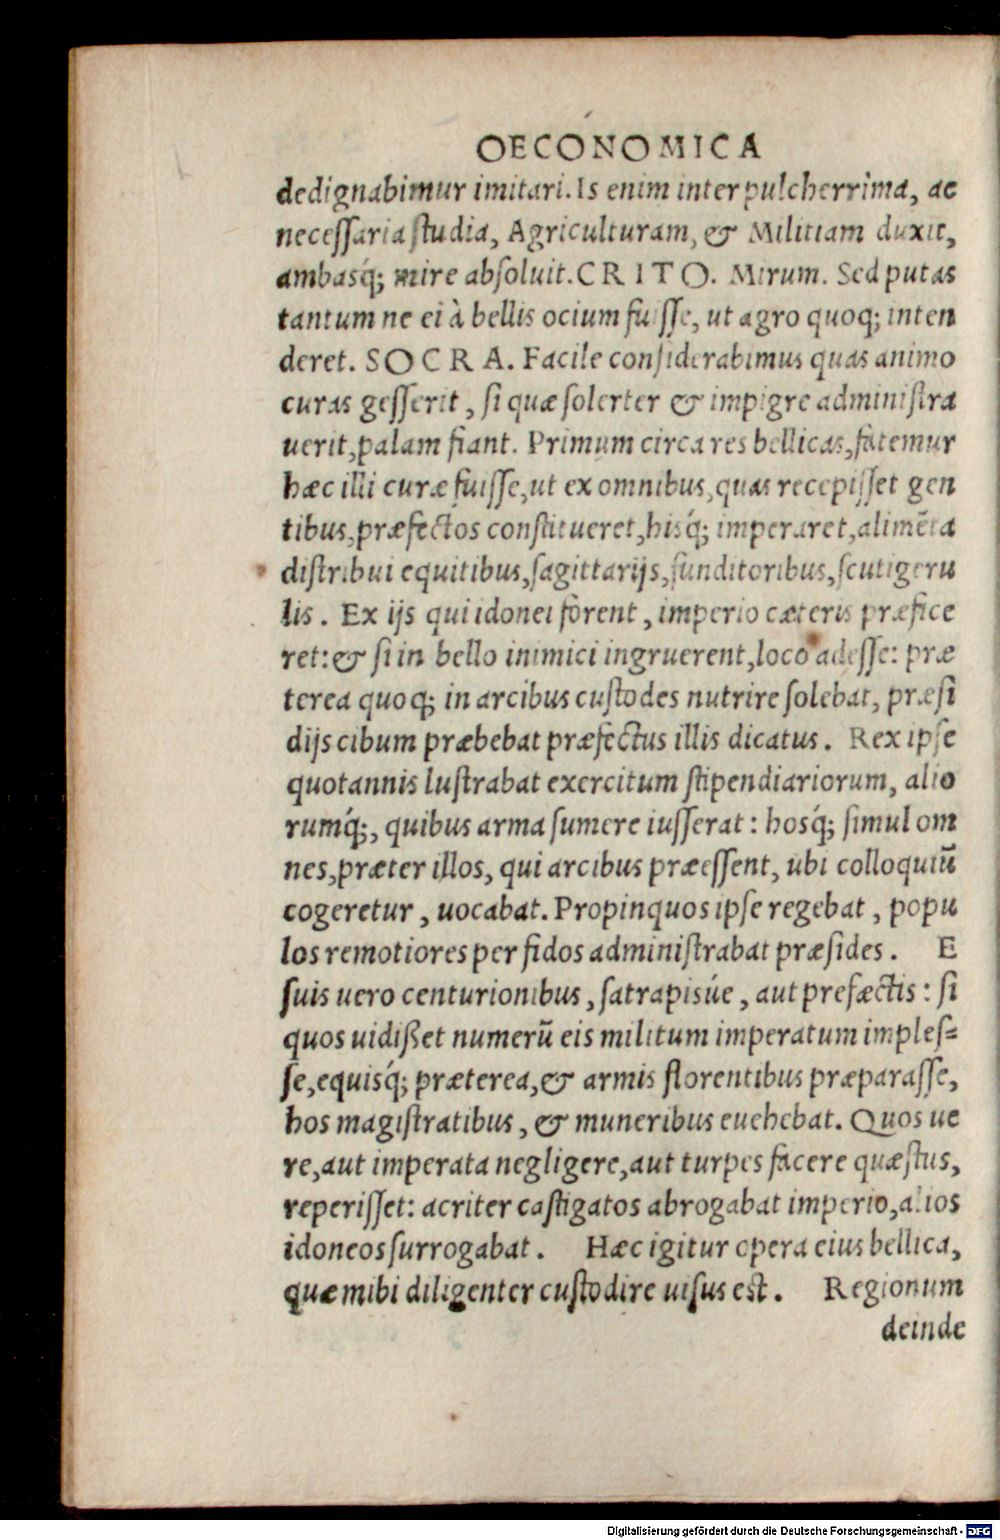 OECONOMICA
dedignabimur imitari. Is enim inter pulcherrima, ac
necessaria studia, Agriculturam, & Militiam duxit,
ambasq́; mire absoluit. CRITO. Mirum. Sed putas
tantum ne ei à bellis ocium fuisse, ut agro quoq; inten
deret. SOCRA. Facile considerabimus quas animo
curas gesserit, si quæ solerter & impigre administra
uerit, palam fiant. Primum circa res bellicas, fatemur
hæc illi curæ fuisse, ut ex omnibus, quas recepisset gen
tibus, præfectos constitueret, hisq́; imperaret, alimẽta
distribui equitibus, sagittarijs, funditoribus, scutigeru
lis. Ex ijs qui idonei forent, imperio cæteris præfice
ret: & si in bello inimici ingruerent, loco adesse: præ
terea quoq; in arcibus custodes nutrire solebat, præsi
dijs cibum præbebat præfectus illis dicatus. Rex ipse
quotannis lustrabat exercitum stipendiariorum, alio
rumq́;, quibus arma sumere iusserat: hosq́; simul om
nes, præter illos, qui arcibus præessent, ubi colloquiũ
cogeretur, uocabat. Propinquos ipse regebat, popu
los remotiores per fidos administrabat præsides. E
suis uero centurionibus, satrapisúe, aut prefæctis: si
quos uidißet numerũ eis militum imperatum imples=
se, equisq́; præterea, & armis florentibus præparasse,
hos magistratibus, & muneribus euehebat. Quos ue
re, aut imperata negligere, aut turpes facere quæstus,
reperisset: acriter castigatos abrogabat imperio, alios
idoneos surrogabat. Hæc igitur opera eius bellica,
quæ mihi diligenter custodire uisus est. Regionum
deinde
Digitalisierung gefördert durch die Deutsche Forschungsgemeinschaft - DFG